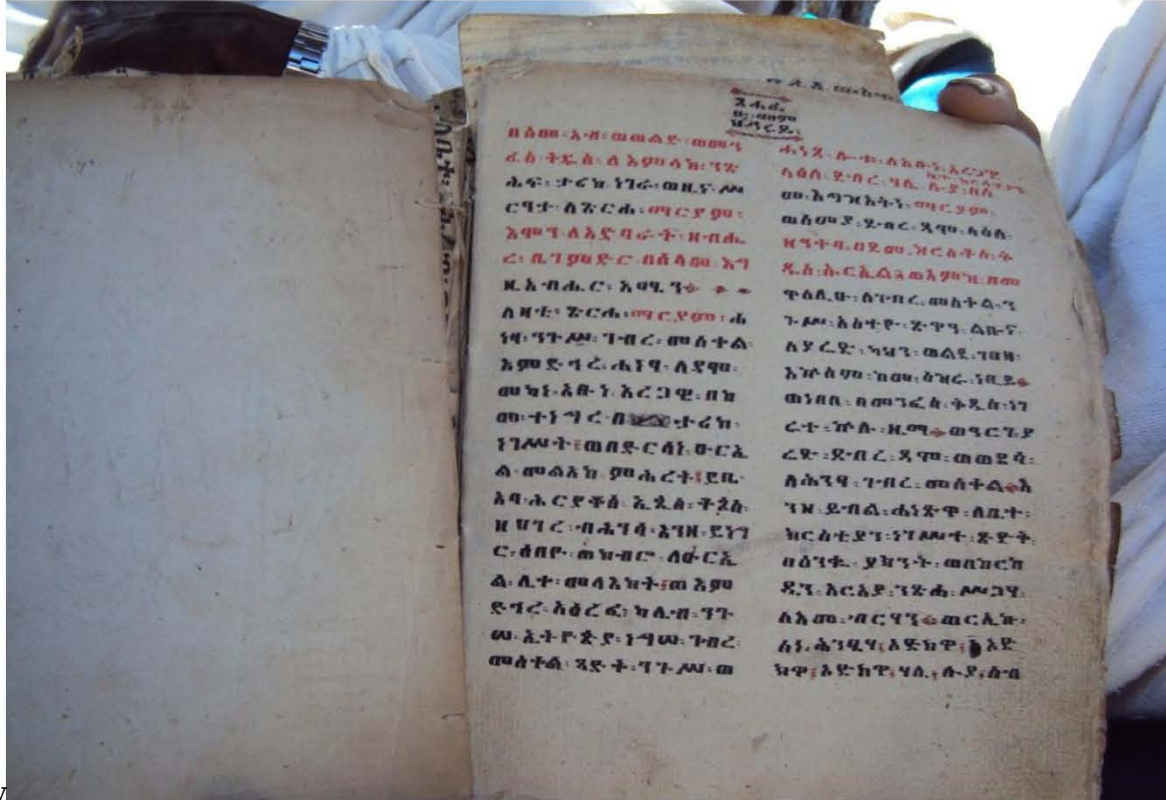 በስመ፡ አብ፡ ወወልድ፡ ወመን
ፈስ፡ ቅዱስ፡ ፩ አምላክ፡ ንጽ
ሕፍ፡ ታሪክ፡ ነገራ፡ ወዜና፡ ሥ
ርዓታ፡ ለጽርሐ፡ ማርያም፡
እሞን፡ ለአድባራት፡ ዘብሔ
ረ፡ ቤገምድር፡ በሰላመ፡ እግ
ዚአብሔር፡ አሜን።
ለዛቲ፡ ጽርሐ፡ ማርያም፡ ሐ
ነፃ፡ ንጉሥ፡ ገብረ፡ መስቀል፡
እምድኅረ፡ ሐነፃ፡ ለዳሞ፡
መካነ፡ አቡነ፡ አረጋዊ፡ በከ
መ፡ ተነግረ፡ በ ታሪክ፡
ነገሥት፡ ወበድርሳነ፡ ዑርኤ
ል፡ መልአከ፡ ምሕረት፡ ደቤ፡
አባ፡ ሕርያቆስ፡ ኤጲስ፡ ቆጶስ፡
ዘሀገረ፡ ብሕንሳ፡ እንዘ፡ ይነግ
ር፡ ዕበዮ፡ ወክብሮ፡ ለዑርኤ
ል፡ ሊቀ፡ መላእክት፡ ወእም
ድኅረ፡ አዕረፈ፡ ካሌብ፡ ንጉ
ሠ፡ ኢትዮጵያ፡ ነግሠ፡ ገብረ፡
መስቀል፡ ጻድቅ፡ ንጉሥ፡ ወ
ሐነጸ፡ ሎቱ፡ ለአቡነ፡ አረጋዊ
ላዕለ፡ ደብረ፡ ሃሌ፡ ሉያ፡ በስ
መ፡ እግዝእትነ፡ ማርያም፡
ወሰመያ፡ ደብረ፡ ዳሞ፡ ላዕለ፡
ዱስ፡ ዑርኤል፡ ወእምዝ፡ በመ
ዋዕሊሁ፡ ለገብረ፡ መስቀል፡ ን
ጉሥ፡ አስተዮ፡ ጽዋዓ፡ ልቡና፡
ለያሬድ፡ ካህን፡ ወልደ፡ ገበዝ፡
አኵስም፡ ከመ፡ ዕዝራ፡ ነቢይ።
ወነበበ፡ በመንፈስ፡ ቅዱስ፡ ነገ
ረ፡ ደብረ፡ ዳሞ፡ ወወደሳ፡
ለሕንፃ፡ ገብረ፡ መስቀል። እ
ንዘ፡ ይብል፡ ሐነጽዋ፡ ለቤተ፡
ክርስቲያን፡ ነገሥተ፡ ጽድቅ፡
በዕንቈ፡ ያክንት፡ ወበከርከ
ዴን፡ አርአያ፡ ንጽሐ፡ ሥጋሃ፡
ለእመ፡ ብርሃን። ወርኢክ፡
ስነ፡ ሕንፄሃ፡ አድክዋ፡ አድ
ክዋ፡ አድክዋ፡ ሃሌ፡ ሉያ፡ ስብ